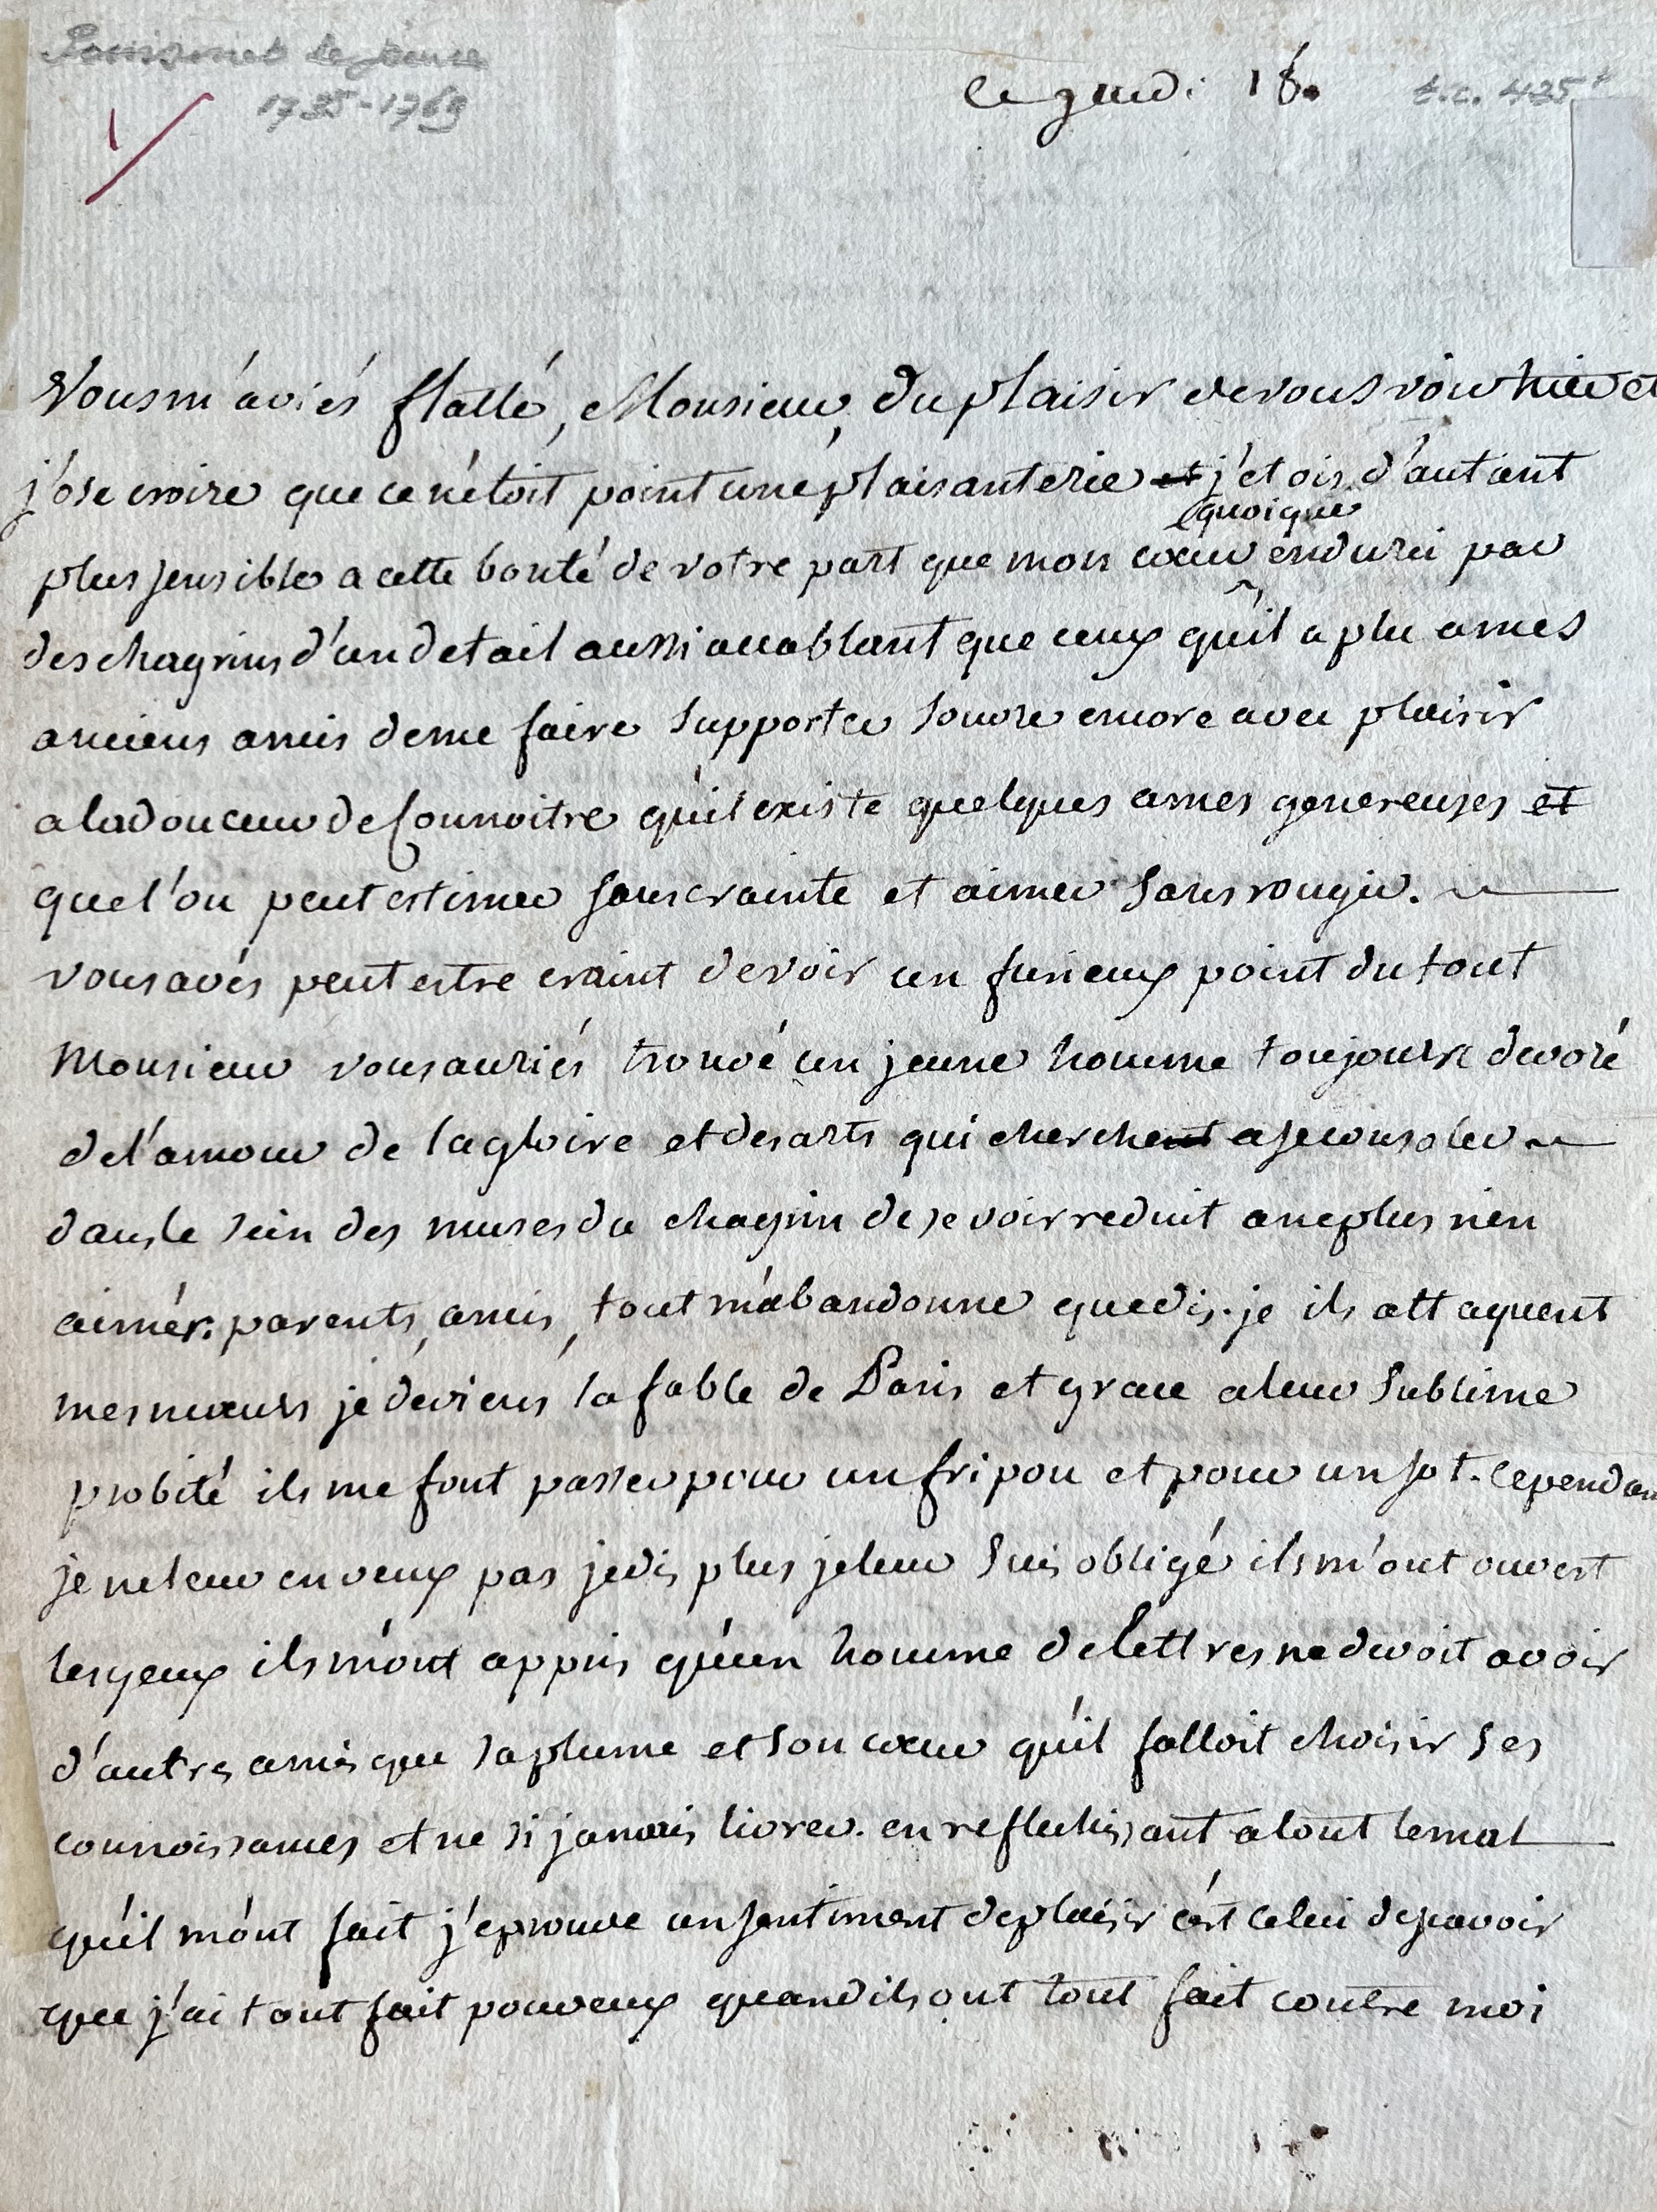 Poinsinet le jeune
1735-1769
ce jeudi 18.
t.c. 425
Vous m'aviés flatté, Monsieur, du plaisir de vous voir hier et
j'ose croire que ce n'étoit point une plaisanterie et j'etois d'autant
quoique
plus sensible a cette bonté de votre part que mon cœur endurci par
des chagrins d'un detail aussi accablant que ceux qu'il a plu a mes
anciens amis de me faire supporter souvre encore avec plaisir
a la douceur de Connoitre qu'il existe quelques ames genereuses et
que l'on peut estimer sans crainte et aimer sans rougir.
vous avés peut estre craint de voir un furieux point du tout
Monsieur vous auriés trouvé un jeune homme toujours devoré
de l'amour de la gloire et des arts qui cherchent a se consoler
dans le sein des muses du chagrin de se voir reduit a ne plus rien
aimér. parents, amis, tout m'abandonne que dis-je ils attaquent
mes mœurs je deviens la fable de Paris et grace a leur sublime
probité ils me font passer pour un fripon et pour un sot. cependan
je ne leur en veux pas je dis plus je leur suis obligé ils m'ont ouvert
les yeux ils m'ont appris qu'un homme de lettres ne devoit avoir
d'autres amis que sa plume et son cœur qu'il falloit choisir ses
connoissances et ne si jamais livrer. en reflechissant a tout le mal
qu'il m'ont fait j'eprouve un sentiment de plaisir c'est celui de scavoir
que j'ai tout fait pour eux quand ils ont tout fait contre moi